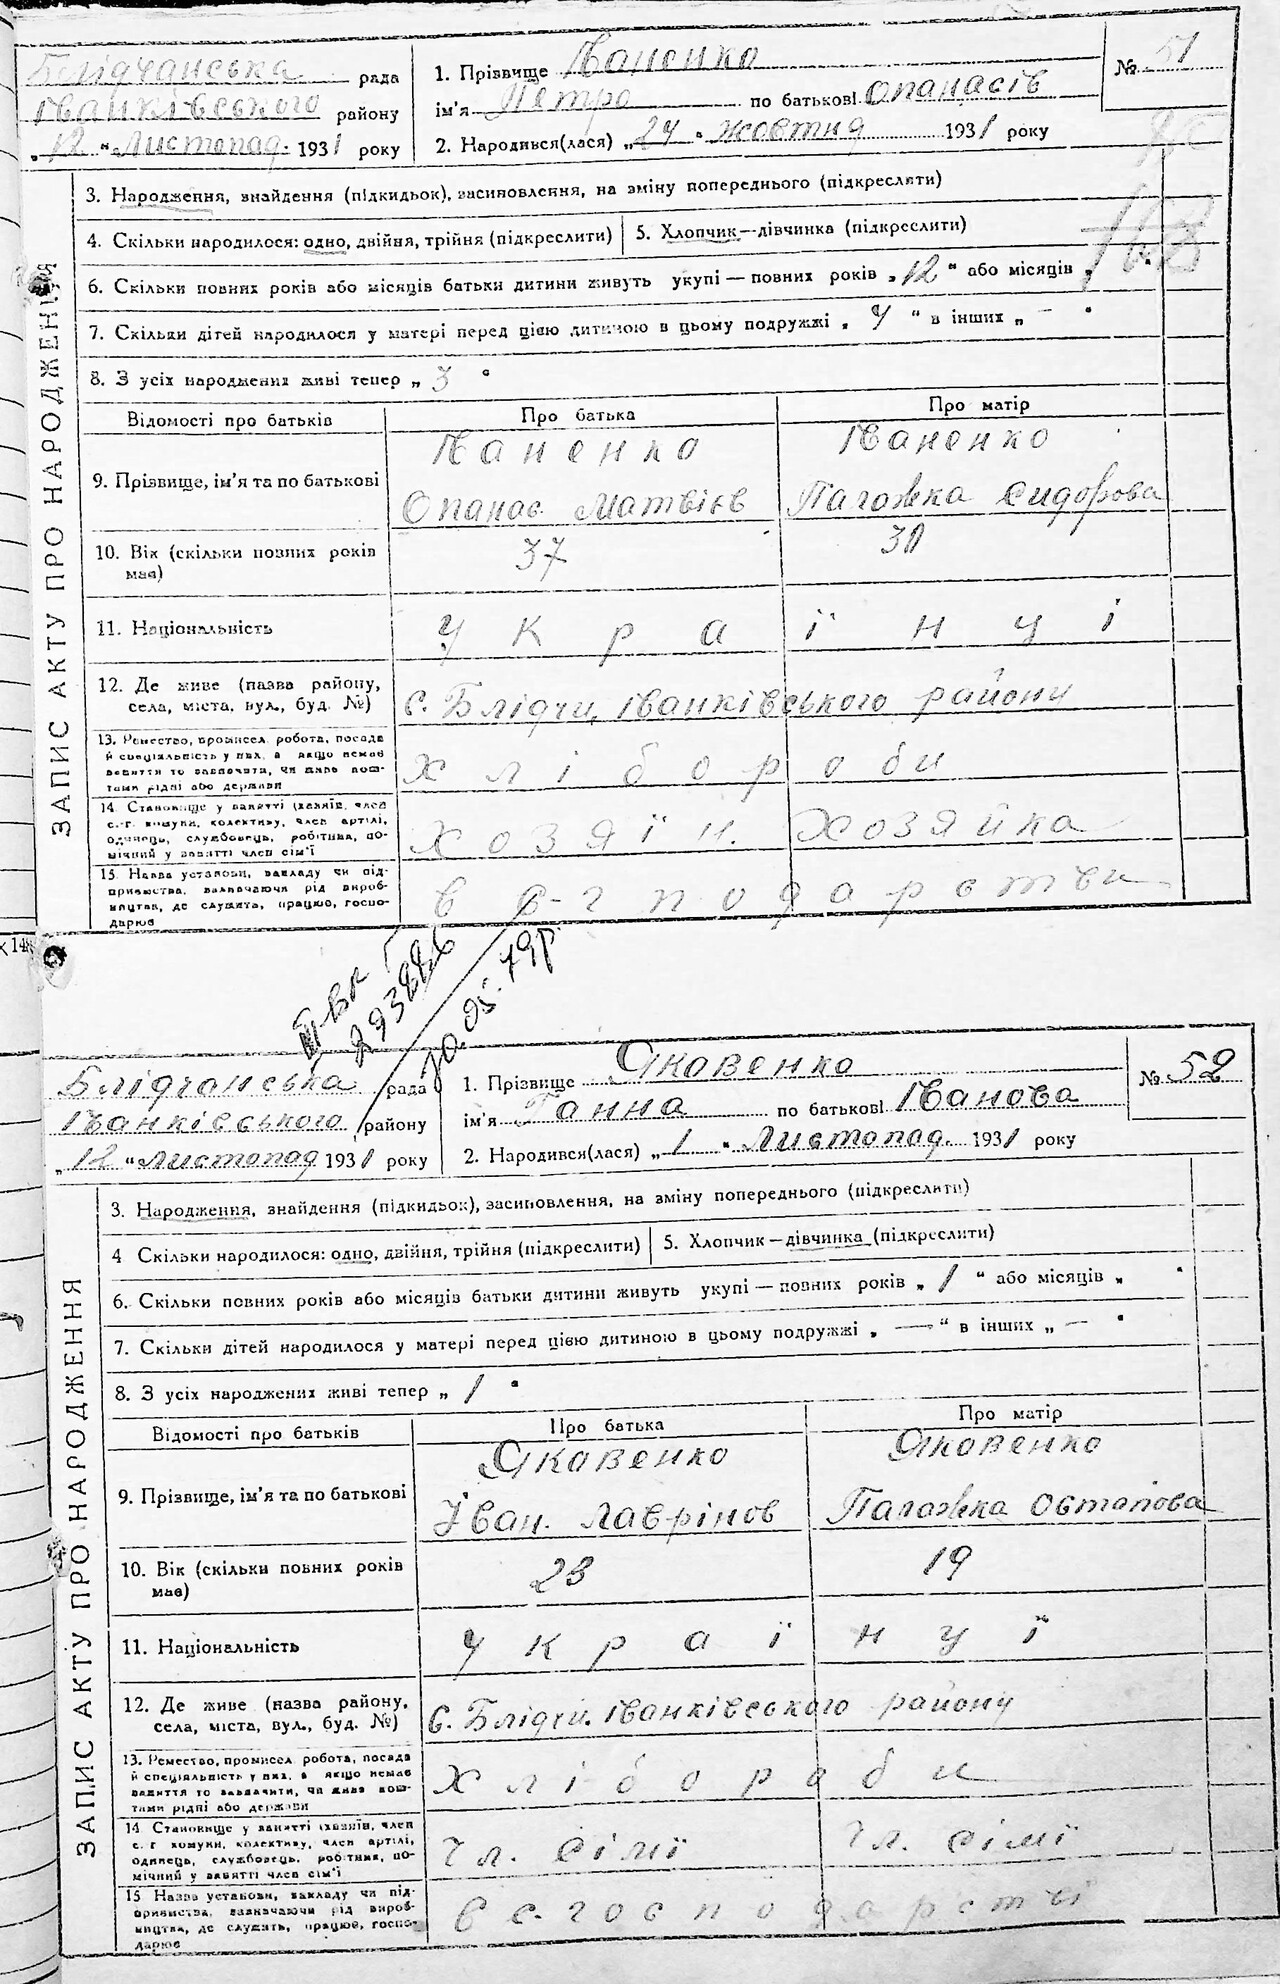 Блідчанська рада
Іванківського району
„12“ Листопад. 1931 року
1. Прізвище Іваненко
ім'я Петро по батькові Опанасів
2. Народився(лася) „24“ жовтня 1931 року
№ 51
163
ЗАПИС АКТУ ПРО НАРОДЖЕННЯ
3. Народження, знайдення (підкидьок), засиновлення, на зміну попереднього (підкреслити)
4. Скільки народилося: одно, двійня, трійня (підкреслити) 5. Хлопчик—дівчинка (підкреслити)
6. Скільки повних років або місяців батьки дитини живуть укупі — повних років „12“ або місяців „
7. Скільки дітей народилося у матері перед цією дитиною в цьому подружжі „4“ в інших „—“
8. З усіх народжених живі тепер „3“
Відомості про батьків Про батька Про матір
9. Прізвище, ім'я та по батькові
Іваненко Іваненко
Опанас Матвієв Палажка Сидорова
10. Вік (скільки повних років має) 37 30
11. Національність Українці
12. Де живе (назва району, села, міста, вул., буд. №) с. Блідчи, Іванківського району
13. Ремество, промисел, робота, посада й спеціяльність у них, а якщо немає заняття то зазначити, чи живе кош-тами рідні або держави
хлібороби
14. Становище у занятті (хазяїн, член с.-г. комуни, колективу, член артілі, одинець, службовець, робітник, по-мічний у занятті член сім'ї
хозяїн. хозяйка
15. Назва установи, закладу чи під-приємства, зазначаючи рід вироб-ництва, де служить, працює, госпо-дарює
в с-г подарстви
14
Блідчанська рада
Іванківського району
„12“ Листопад 1931 року
1. Прізвище Яковенко
ім'я Ганна по батькові Іванова
2. Народився(лася) „1“ Листопад. 1931 року
№ 52
ЗАПИС АКТУ ПРО НАРОДЖЕННЯ
3. Народження, знайдення (підкидьок), засиновлення, на зміну попереднього (підкреслити)
4 Скільки народилося: одно, двійня, трійня (підкреслити) 5. Хлопчик—дівчинка (підкреслити)
6. Скільки повних років або місяців батьки дитини живуть укупі — повних років „1“ або місяців „ “
7. Скільки дітей народилося у матері перед цією дитиною в цьому подружжі „—“ в інших „—“
8. З усіх народжених живі тепер „1“
Відомості про батьків Про батька Про матір
9. Прізвище, ім'я та по батькові
Яковенко Яковенко
Іван. Лаврінов Палажка Остапова
10. Вік (скільки повних років має) 23 19
11. Національність Українці
12. Де живе (назва району, села, міста, вул., буд. №) с. Блідчи. Іванківського району
13. Ремество, промисел, робота, посада й спеціяльність у них, а якщо немає заняття то зазначити, чи живе кош-тами рідні або держави
хлібороби
14. Становище у занятті (хазяїн, член с. г. комуни, колективу, член артілі, одинець, службовець, робітник, по-мічний у занятті член сім'ї
чл. сімї чл. сімї
15 Назва установи, закладу чи під-приємства, зазначаючи рід вироб-ництва, де служить, працює, госпо-дарює
в с. господарстві